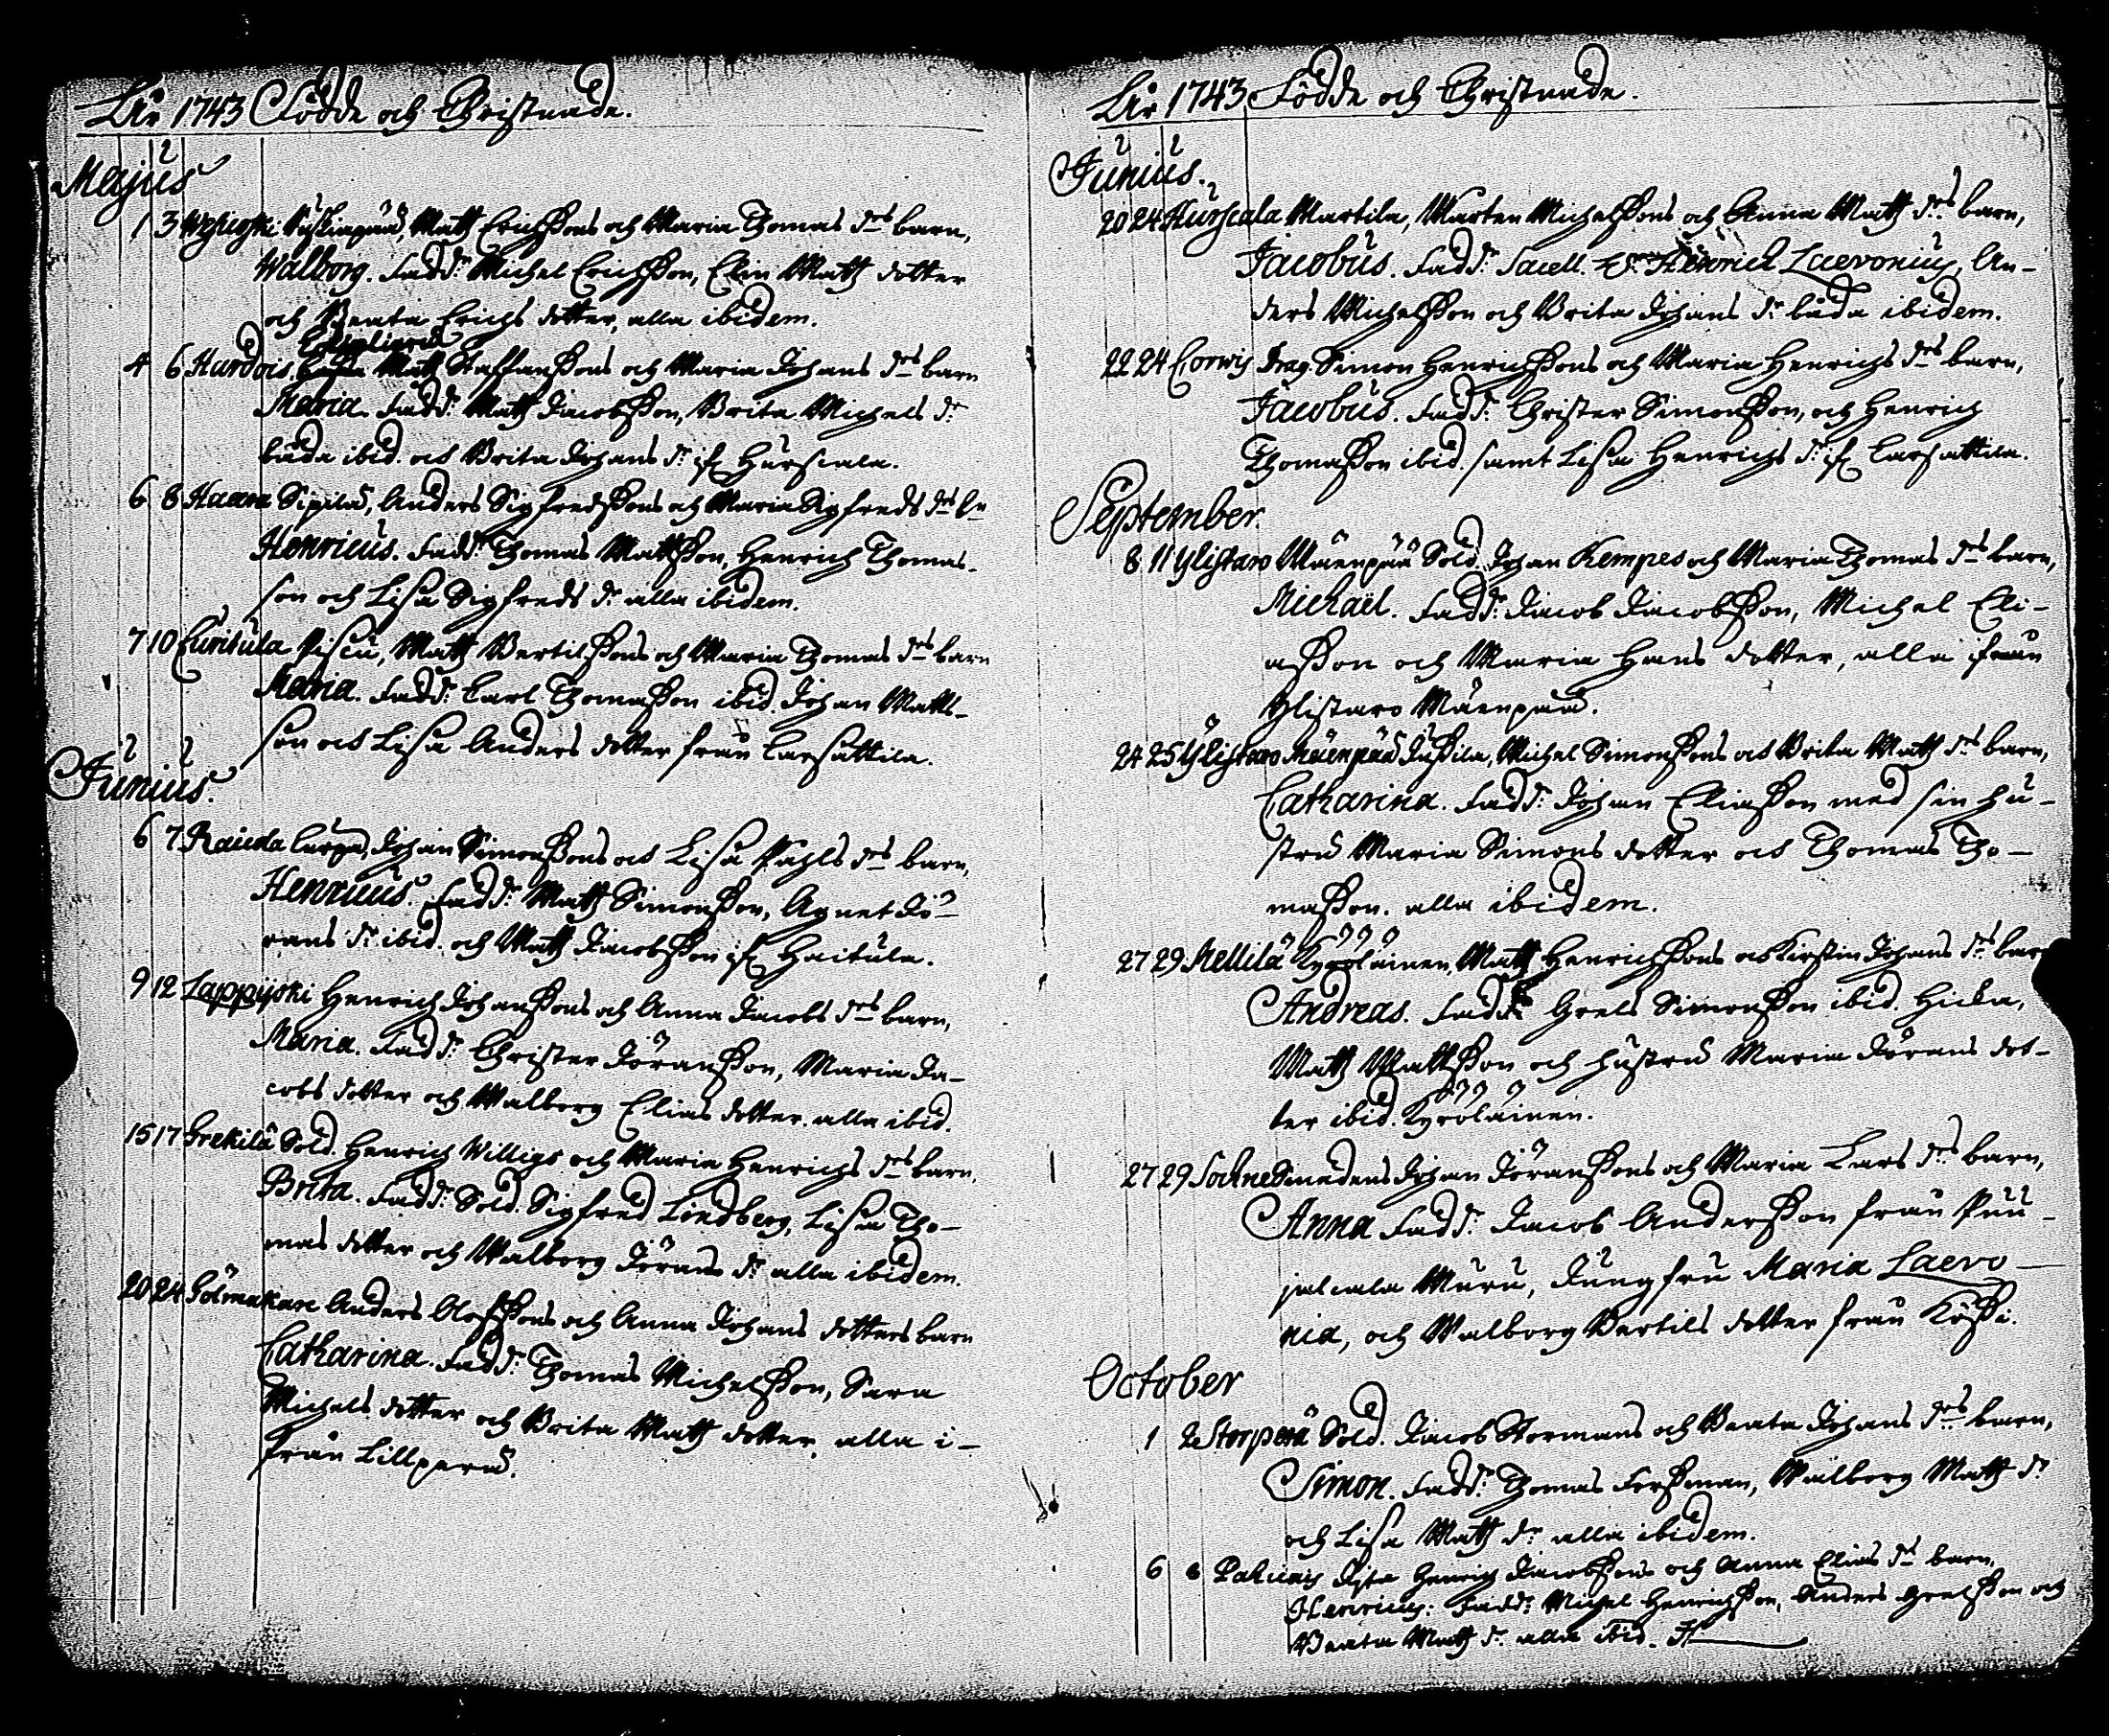 Åhr 1743 Födde och Christnade.
Majus
1 3 Matth Erichssons och Maria Thomas drs barn,
Walborg. Fadd: Michel Erichsson, Elin Matth dotter
och Beata Erichs dotter, alla ibidem.
4 6 Hurdois Matth Staffanssons och Maria Johans drs barn
Maria. Fadd: Matth Jacobsson, Brita Michels dr
båda ibid. och Brita Johans dr if Hurscala.
6 8 Haara Sipilä, Anders Sigfredssons och Maria Sigfreds drs bn
Henricus. Fadd: Thomas Mattsson, Henrich Thomas-
son och Lisa Sigfreds dr alla ibidem.
7 10 Curitula Matth Bertilssons och Maria Thomas drs barn
Maria. Fadd: Carl Thomasson ibid. Johan Matts-
son och Lisa Anders dotter från Carsattila.
Junius.
6 7 Rauda Johan Simonssons och Lisa Påhls drs barn,
Henricus. Fadd: Matth Simonsson, Agnet Jö-
rans dr ibid. och Matth Jacobsson if Haitula.
9 12 Lappijoki Henrich Johanssons och Anna Jacobs drs barn,
Maria. Fadd: Christer Jöransson, Maria Ja-
cobs dotter och Walborg Elias dotter. alla ibid.
15 17 Grekilä Sold. Henrich Willigs och Maria Henrichs drs barn,
Brita. Fadd: Sold. Sigfred Lindberg, Lisa Tho-
mas dotter och Walborg Jörans dr alla ibidem.
20 24 Anders Olofssons och Anna Johans dotters barn
Catharina. Fadd: Thomas Michelsson, Sara
Michels dotter och Brita Matth dotter, alla i-
från Lillperä.
Åhr 1743 Födde och Christnade.
Junius.
20 24 Hurscala Martila, Mårten Michelssons och Anna Matth drs barn,
Jacobus. Fadd: Sacell. Hr Henrich Laevonius, An-
ders Michelsson och Brita Johans dr båda ibidem.
22 24 Corwis Drag. Simon Henrichssons och Maria Henrichs drs barn,
Jacobus. Fadd: Christer Simonsson, och Henrich
Thomasson ibid. samt Lisa Henrichs dr if Carsattila.
September.
8 11 Ylistaro Mäenpää Sold. Johan Kempes och Maria Thomas drs barn,
Michaël. Fadd: Jacob Jacobsson, Michel Eli-
asson och Maria Hans dotter, alla ifrån
Ylistaro Mäenpää.
24 25 Ylistaro Mäenpää Jussila, Michel Simonssons och Brita Matth drs barn,
Catharina. Fadd: Johan Eliasson med sin hu-
stru Maria Simons dotter och Thomas Tho-
masson. alla ibidem.
27 29 Mellilä Kyröläinen, Matth Henrichssons och Kirstin Johans drs bar
Andreas. Fadd: Grels Simonsson ibid.
Matth Mattsson och hustru Maria Jörans dot-
ter ibid. Kyröläinen.
27 29 Sockne Smedens Johan Jöranssons och Maria Lars drs barn,
Anna Fadd: Jacob Andersson från Puu-
jalcala Muru, Jungfru Maria Laevo-
nia, och Walborg Bertils dotter från
October
1 2 Storperä Sold. Jacob Stormans och Beata Johans drs barn,
Simon. Fadd: Thomas Forssman, Walborg Matth dr
och Lisa Matth dr alla ibidem.
6 8 Henrich Jacobssons och Anna Elias drs barn,
Henricus: Fadd: Michel Henrichsson, Anders Grelsson och
Beata Matth dr alla ibid.